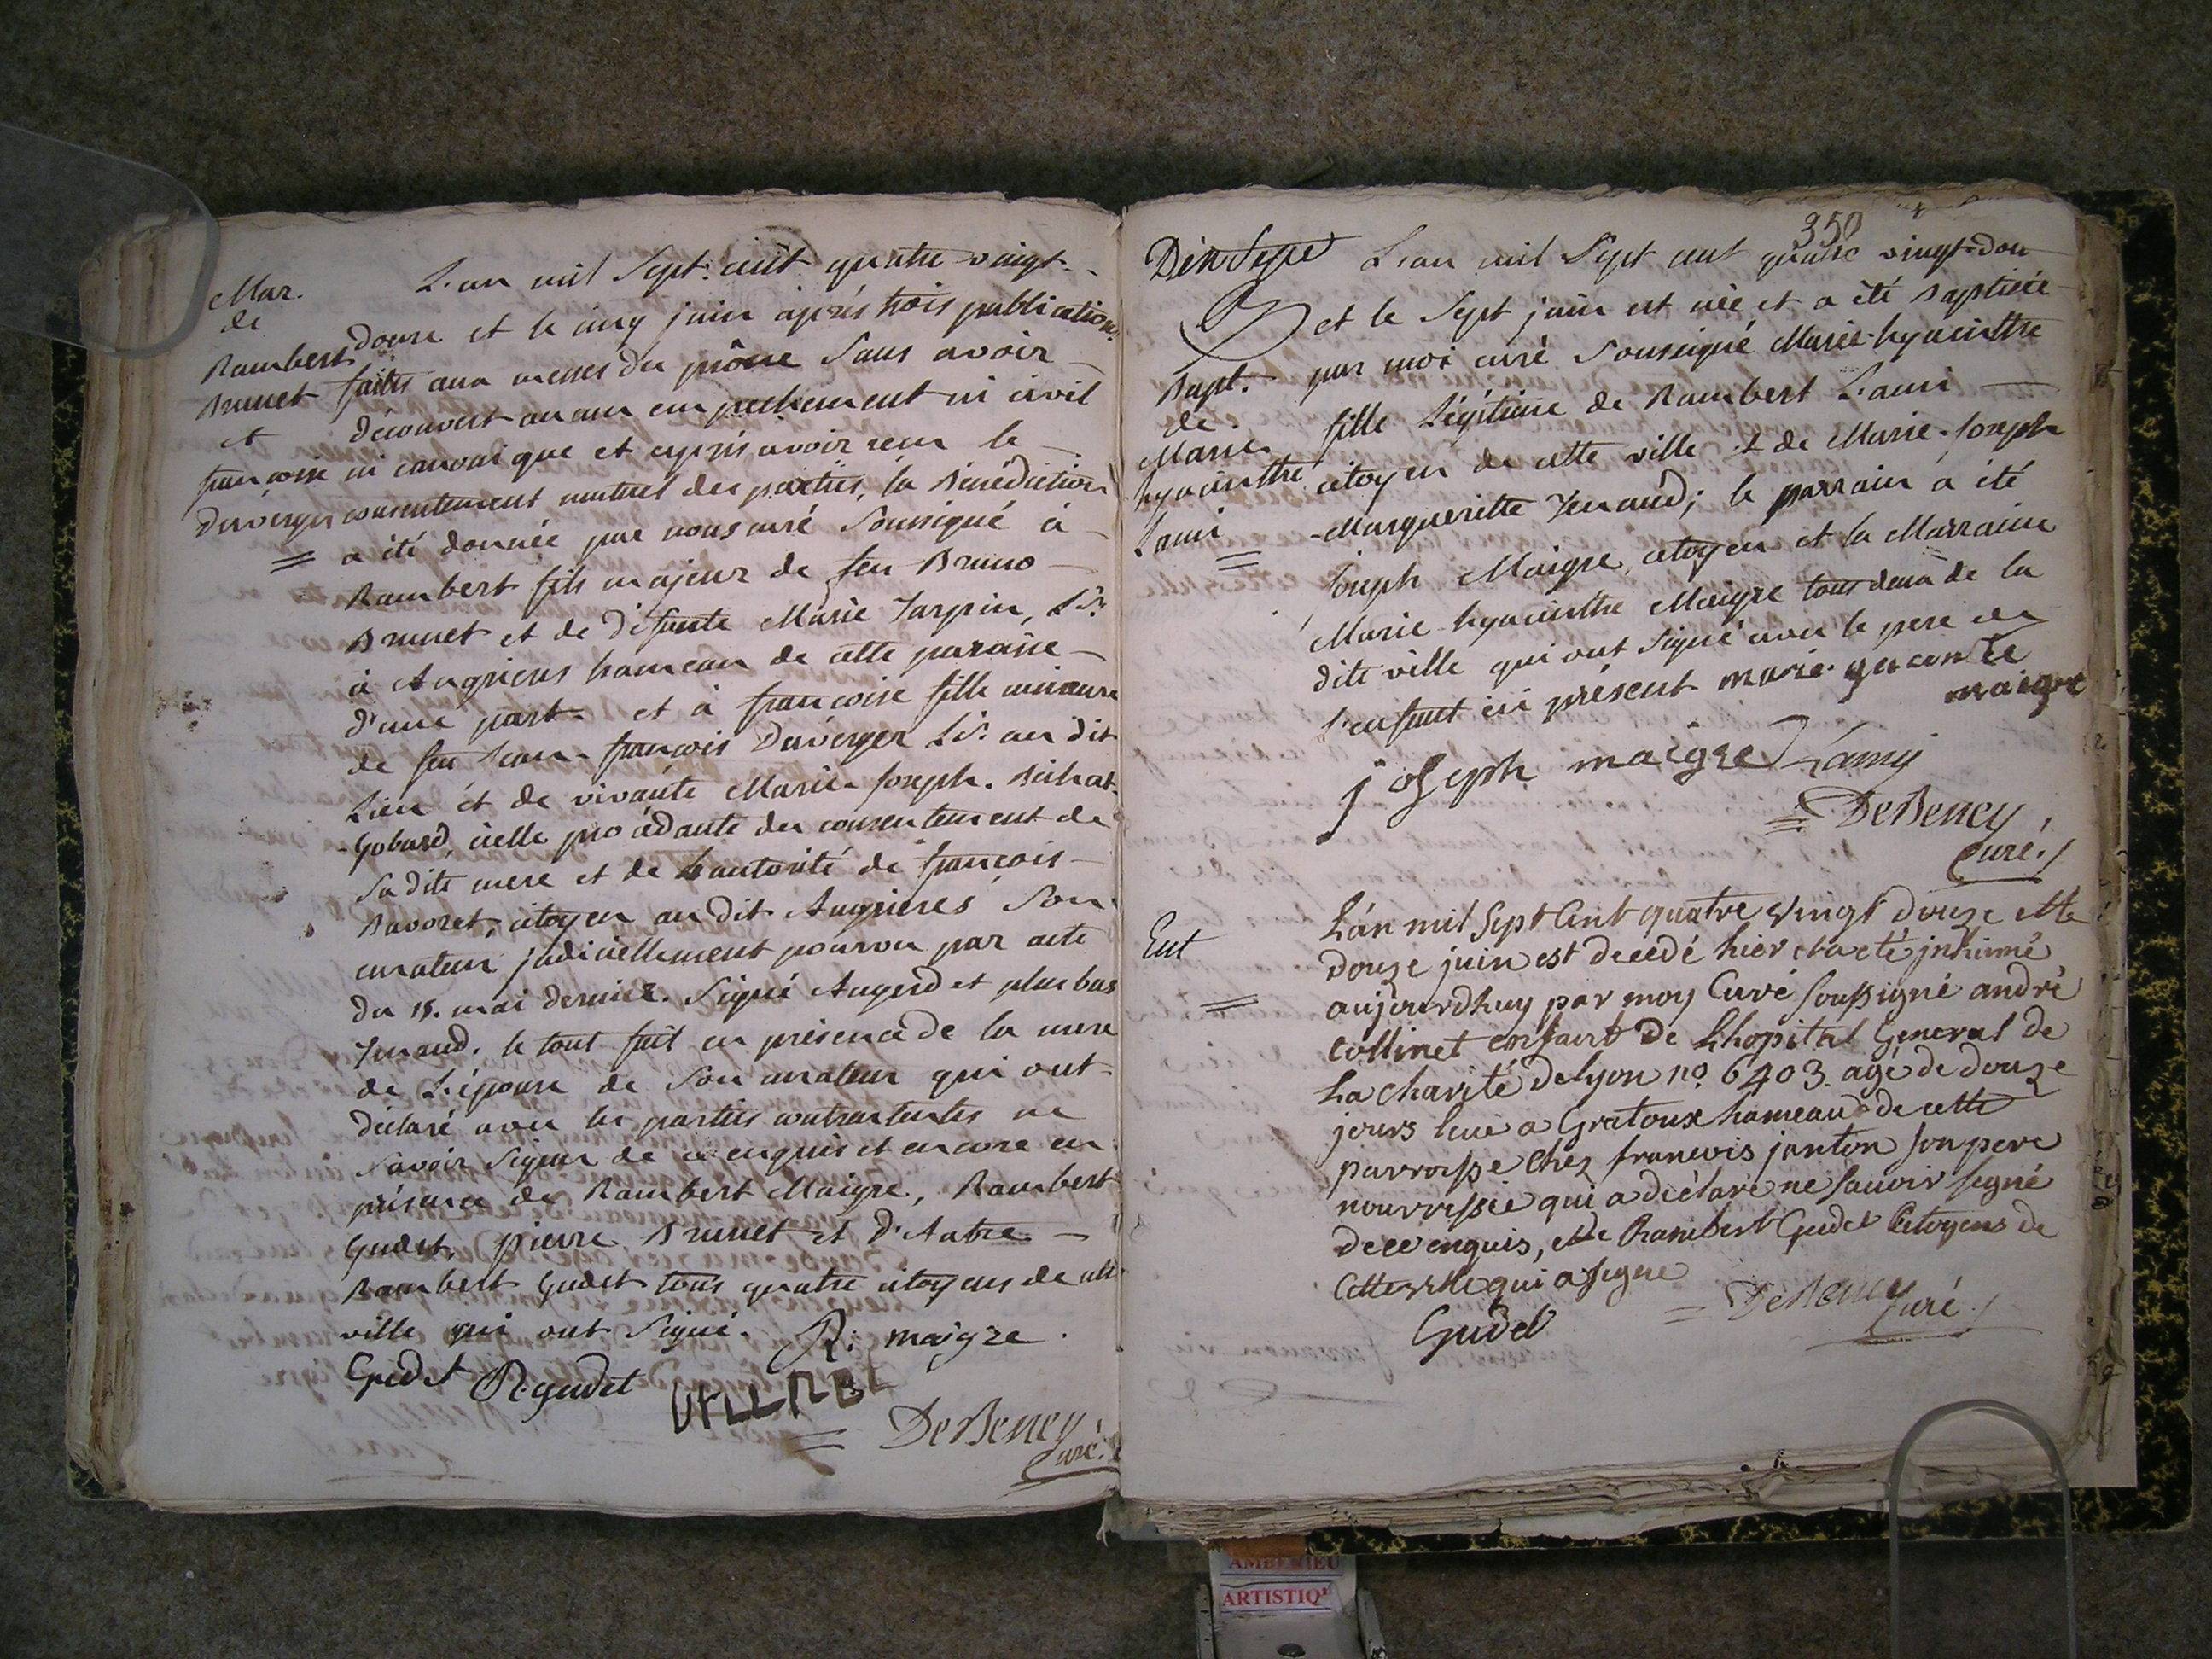 Mar.
de
Rambert
Brunet
et
françoise
Duverger
L'an mil Sept. cent quatre vingt
douze et le cinq juin après trois publications
faites aux messes du prône Sans avoir
découvert aucun empechement ni civil
ni canonique et après avoir reçu le
consentement mutuel des parties, la Bénédiction
a été donnée par nous curé Soussigné à
Rambert fils majeur de feu Bruno
Brunet et de défunte Marie Tarpin,
à Augrieres hameau de cette paroisse
d'une part. et à françoise fille mineure
de feu Jean-françois Duverger au dit
Lieu et de vivante Marie Joseph.
Gobard, icelle procédante du consentement de
Sa dite mere et de L'autorité de françois
Ravoret, citoyen au dit Augrieres Son
curateur judiciellement pourvu par acte
du 15. mai dernier. Signé Augerd et plus bas
Tenand. le tout fait en présence de la mere
de L'épouse de Son curateur qui ont
déclaré avec les parties contractantes ne
Savoir Signer de ce enquis et encore en
présence de Rambert Maigre, Rambert
Gudet, pierre Brunet et D'Autre
Rambert Gudet tous quatre citoyens de cette
ville qui ont Signé. R: maigre
Gudet R. gudet
DeBeney
Curé.
350
Dix Sept
Bapt.
de
Marie
hyacinthe
Lami
L'an mil Sept cent quatre vingt-dou
et le Sept juin est née et a été Baptisée
par moi curé Soussigné Marie-hyacinthe
fille Légitime de Rambert Lami
citoyen de cette ville et de Marie-Joseph
Marguerite Tenand; le parrain a été
Joseph Maigre, citoyen et la Marraine
Marie-hyacinthe Maigre tous deux de la
dite ville qui ont Signé avec le pere de
l'enfant ici présent marie
maigre
joseph maigre Lamy
DeBeney
Curé.
Ent
L'an mil Sept Cent quatre vingt douze et le
douze juin est decedé hier et a eté jnhumé
aujourdhuy par moy Curé Soussigné andré
Collinet enfant de Lhopital General de
La charité de lyon no. 6403. agé de douze
jours a Gratoux hameau de cette
parroisse chez francois janton son pere
nourrissié qui a déclaré ne sauvoir signé
de ce enquis, et de Rambert Gudet Citoyens de
Cette ville qui a signe
Gudet
DeBeney
Curé
AMBERIEU
ARTISTIQ